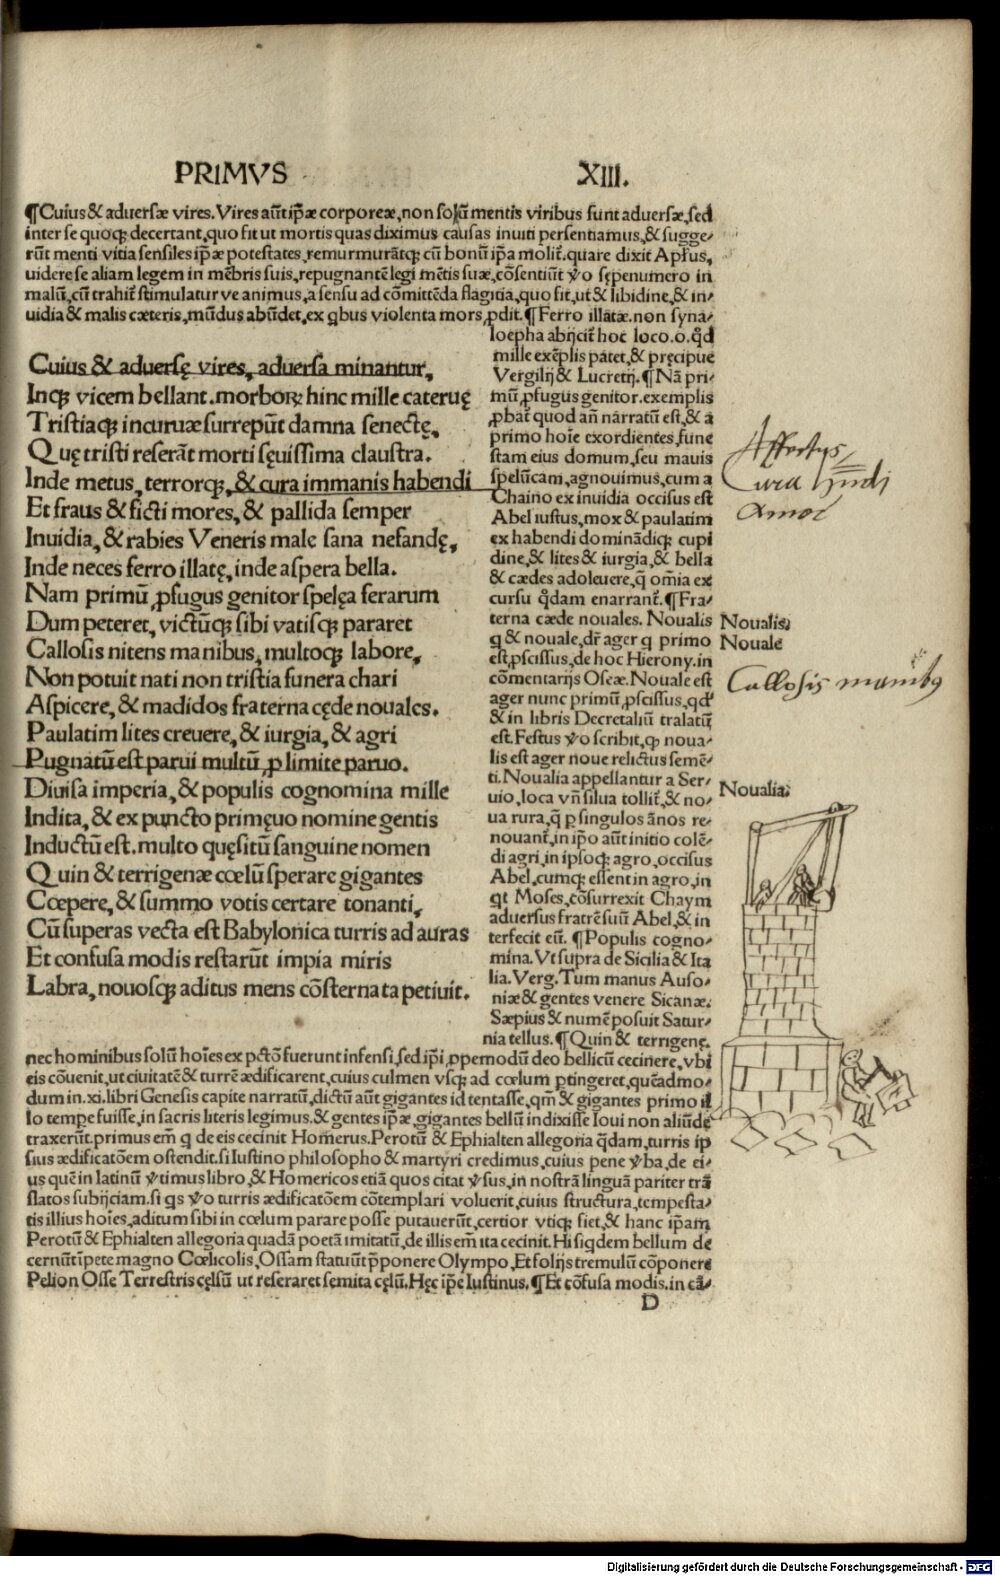 PRIMVS XIII.
¶Cuius & aduersæ vires. Vires aūt ip̄æ corporeæ, non solū mentis viribus sunt aduersæ, sed
inter se quoqꝫ decertant, quo fit ut mortis quas diximus causas inuiti persentiamus, & sugge⸗
rūt menti vitia sensiles ip̄æ potestates, remurmurātqꝫ cū bonū ip̄a molit̄. quare dixit Apl̄us,
uidere se aliam legem in mēbris suis, repugnantē legi mētis suæ, cōsentiūt ꝟo sępenumero in
malū, cū trahit̄ stimulatur ve animus, a sensu ad cōmittēda flagitia, quo fit, ut & libidine, & in⸗
uidia & malis cæteris, mūdus abūdet, ex q̄bus violenta mors ꝓdit. ¶Ferro illatæ. non syna⸗
loepha abijcit̄ hoc loco. o. q̄d
mille exēplis patet, & pręcipue
Vergilij & Lucretij. ¶Nā pri⸗
mū ꝓfugus genitor. exemplis
ꝓbat̄ quod añ narratū est, & a
primo hoīe exordientes, fune
stam eius domum, seu mauis
spelūcam, agnouimus, cum a
Chaino ex inuidia occisus est
Abel iustus, mox & paulatim
ex habendi dominādiqꝫ cupi
dine, & lites & iurgia, & bella
& cædes adoleuere, q̄ om̄ia ex
cursu q̄dam enarrant̄. ¶Fra⸗
terna cæde nouales. Noualis
q & nouale, dr̄ ager q primo
est, ꝓscissus, de hoc Hierony. in
cōmentarijs Oseæ. Nouale est
ager nunc primū, ꝓscissus, qd̄
& in libris Decretaliū tralatū
est. Festus ꝟo scribit, ꝙ noua⸗
lis est ager noue relictus semē⸗
ti. Noualia appellantur a Ser⸗
uio, loca vn̄ silua tollit̄, & no⸗
ua rura, q̄ ꝑ singulos ānos re⸗
nouant̄, in ip̄o aūt initio colē⸗
di agri, in ipsoqꝫ agro, occisus
Abel, cumqꝫ essent in agro, in
qt Moses, cōsurrexit Chaym
aduersus fratrē suū Abel, & in
terfecit eū. ¶Populis cogno⸗
mina. Vt supra de Sicilia & Ita
lia. Verg. Tum manus Auso⸗
niæ & gentes venere Sicanæ.
Sæpius & numē posuit Satur⸗
nia tellus. ¶Quin & terrigenę.
Cuius & aduersę vires, aduersa minantur,
Inqꝫ vicem bellant. morborꝝ hinc mille cateruę
Tristiaqꝫ incuruæ surrepūt damna senectę,
Quę tristi reserāt morti sęuissima claustra.
Inde metus, terrorqꝫ, & cura immanis habendi
Et fraus & ficti mores, & pallida semper
Inuidia, & rabies Veneris male sana nefandę,
Inde neces ferro illatę, inde aspera bella.
Nam primū ꝓfugus genitor spelęa ferarum
Dum peteret, victūqꝫ sibi vatisqꝫ pararet
Callosis nitens manibus, multoqꝫ labore,
Non potuit nati non tristia funera chari
Aspicere, & madidos fraterna cęde nouales.
Paulatim lites creuere, & iurgia, & agri
Pugnatū est parui multū, ꝓ limite paruo.
Diuisa imperia, & populis cognomina mille
Indita, & ex puncto primęuo nomine gentis
Inductū est. multo quęsitū sanguine nomen
Quin & terrigenæ cœlū sperare gigantes
Cœpere, & summo votis certare tonanti,
Cū superas vecta est Babylonica turris ad auras
Et confusa modis restarūt impia miris
Labra, nouosqꝫ aditus mens cōsternata petiuit.
cura
amor
Noualis
Nouale
Callosis manibꝰ
Noualia
nec hominibus solū hoīes ex pctō fuerunt infensi, sed ip̄i ꝓpemodū deo bellicū cecinere, vbi
eis cōuenit, ut ciuitatē & turrē ædificarent, cuius culmen vsqꝫ ad cœlum ꝑtingeret, quēadmo⸗
dum in. xi. libri Genesis capite narratū, dictū aūt gigantes id tentasse, qm̄ & gigantes primo il
lo tempe fuisse, in sacris literis legimus. & gentes ip̄æ, gigantes bellū indixisse Ioui non aliūde
traxerūt. primus em̄ q de eis cecinit Homerus. Perotū & Ephialten allegoria q̄dam, turris ip
sius ædificatōem ostendit. si Iustino philosopho & martyri credimus, cuius pene ꝟba, de ei⸗
us quē in latinū ꝟtimus libro, & Homericos etiā quos citat ꝟsus, in nostrā linguā pariter trā
slatos subijciam. si qs ꝟo turris ædificatōem cōtemplari voluerit, cuius structura, tempesta⸗
tis illius hoīes, aditum sibi in cœlum parare posse putauerūt, certior vtiqꝫ fiet, & hanc ip̄am
Perotū & Ephialten allegoria quadā poetā imitatū, de illis em̄ ita cecinit. Hi siqdem bellum de
cernūt īpete magno Cœlicolis, Ossam statuūt p̄ponere Olympo, Et folijs tremulū cōponere
Pelion Osse Terrestris cęlsū ut reseraret semita cęlū. Hęc ip̄e Iustinus. ¶Et cōfusa modis. in cā⸗
D
Digitalisierung gefördert durch die Deutsche Forschungsgemeinschaft - DFG